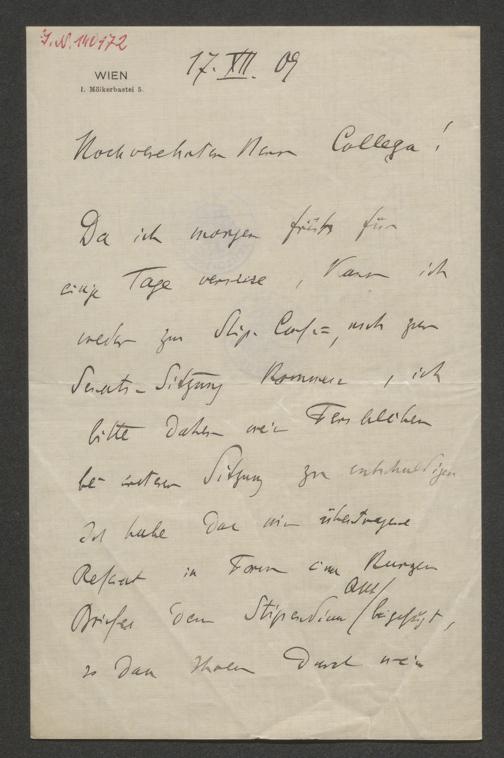 J.N. 141472
17. XII. 09
WIEN
I. Mölkerbastei 5.
Hochverehrter Herr Collega!
Da ich morgen früh für
einige Tage verreise, kann ich
weder zur Stip. Conf=, noch zur
Senats-Sitzung kommen, ich
bitte daher mein Fernbleiben
bei ersterer Sitzung zu entschuldigen
Ich habe das mir übertragene
Referat in Form eines kurzen
Briefes dem Stipendium/Akt/beigefügt,
so dass Ihnen durch mein